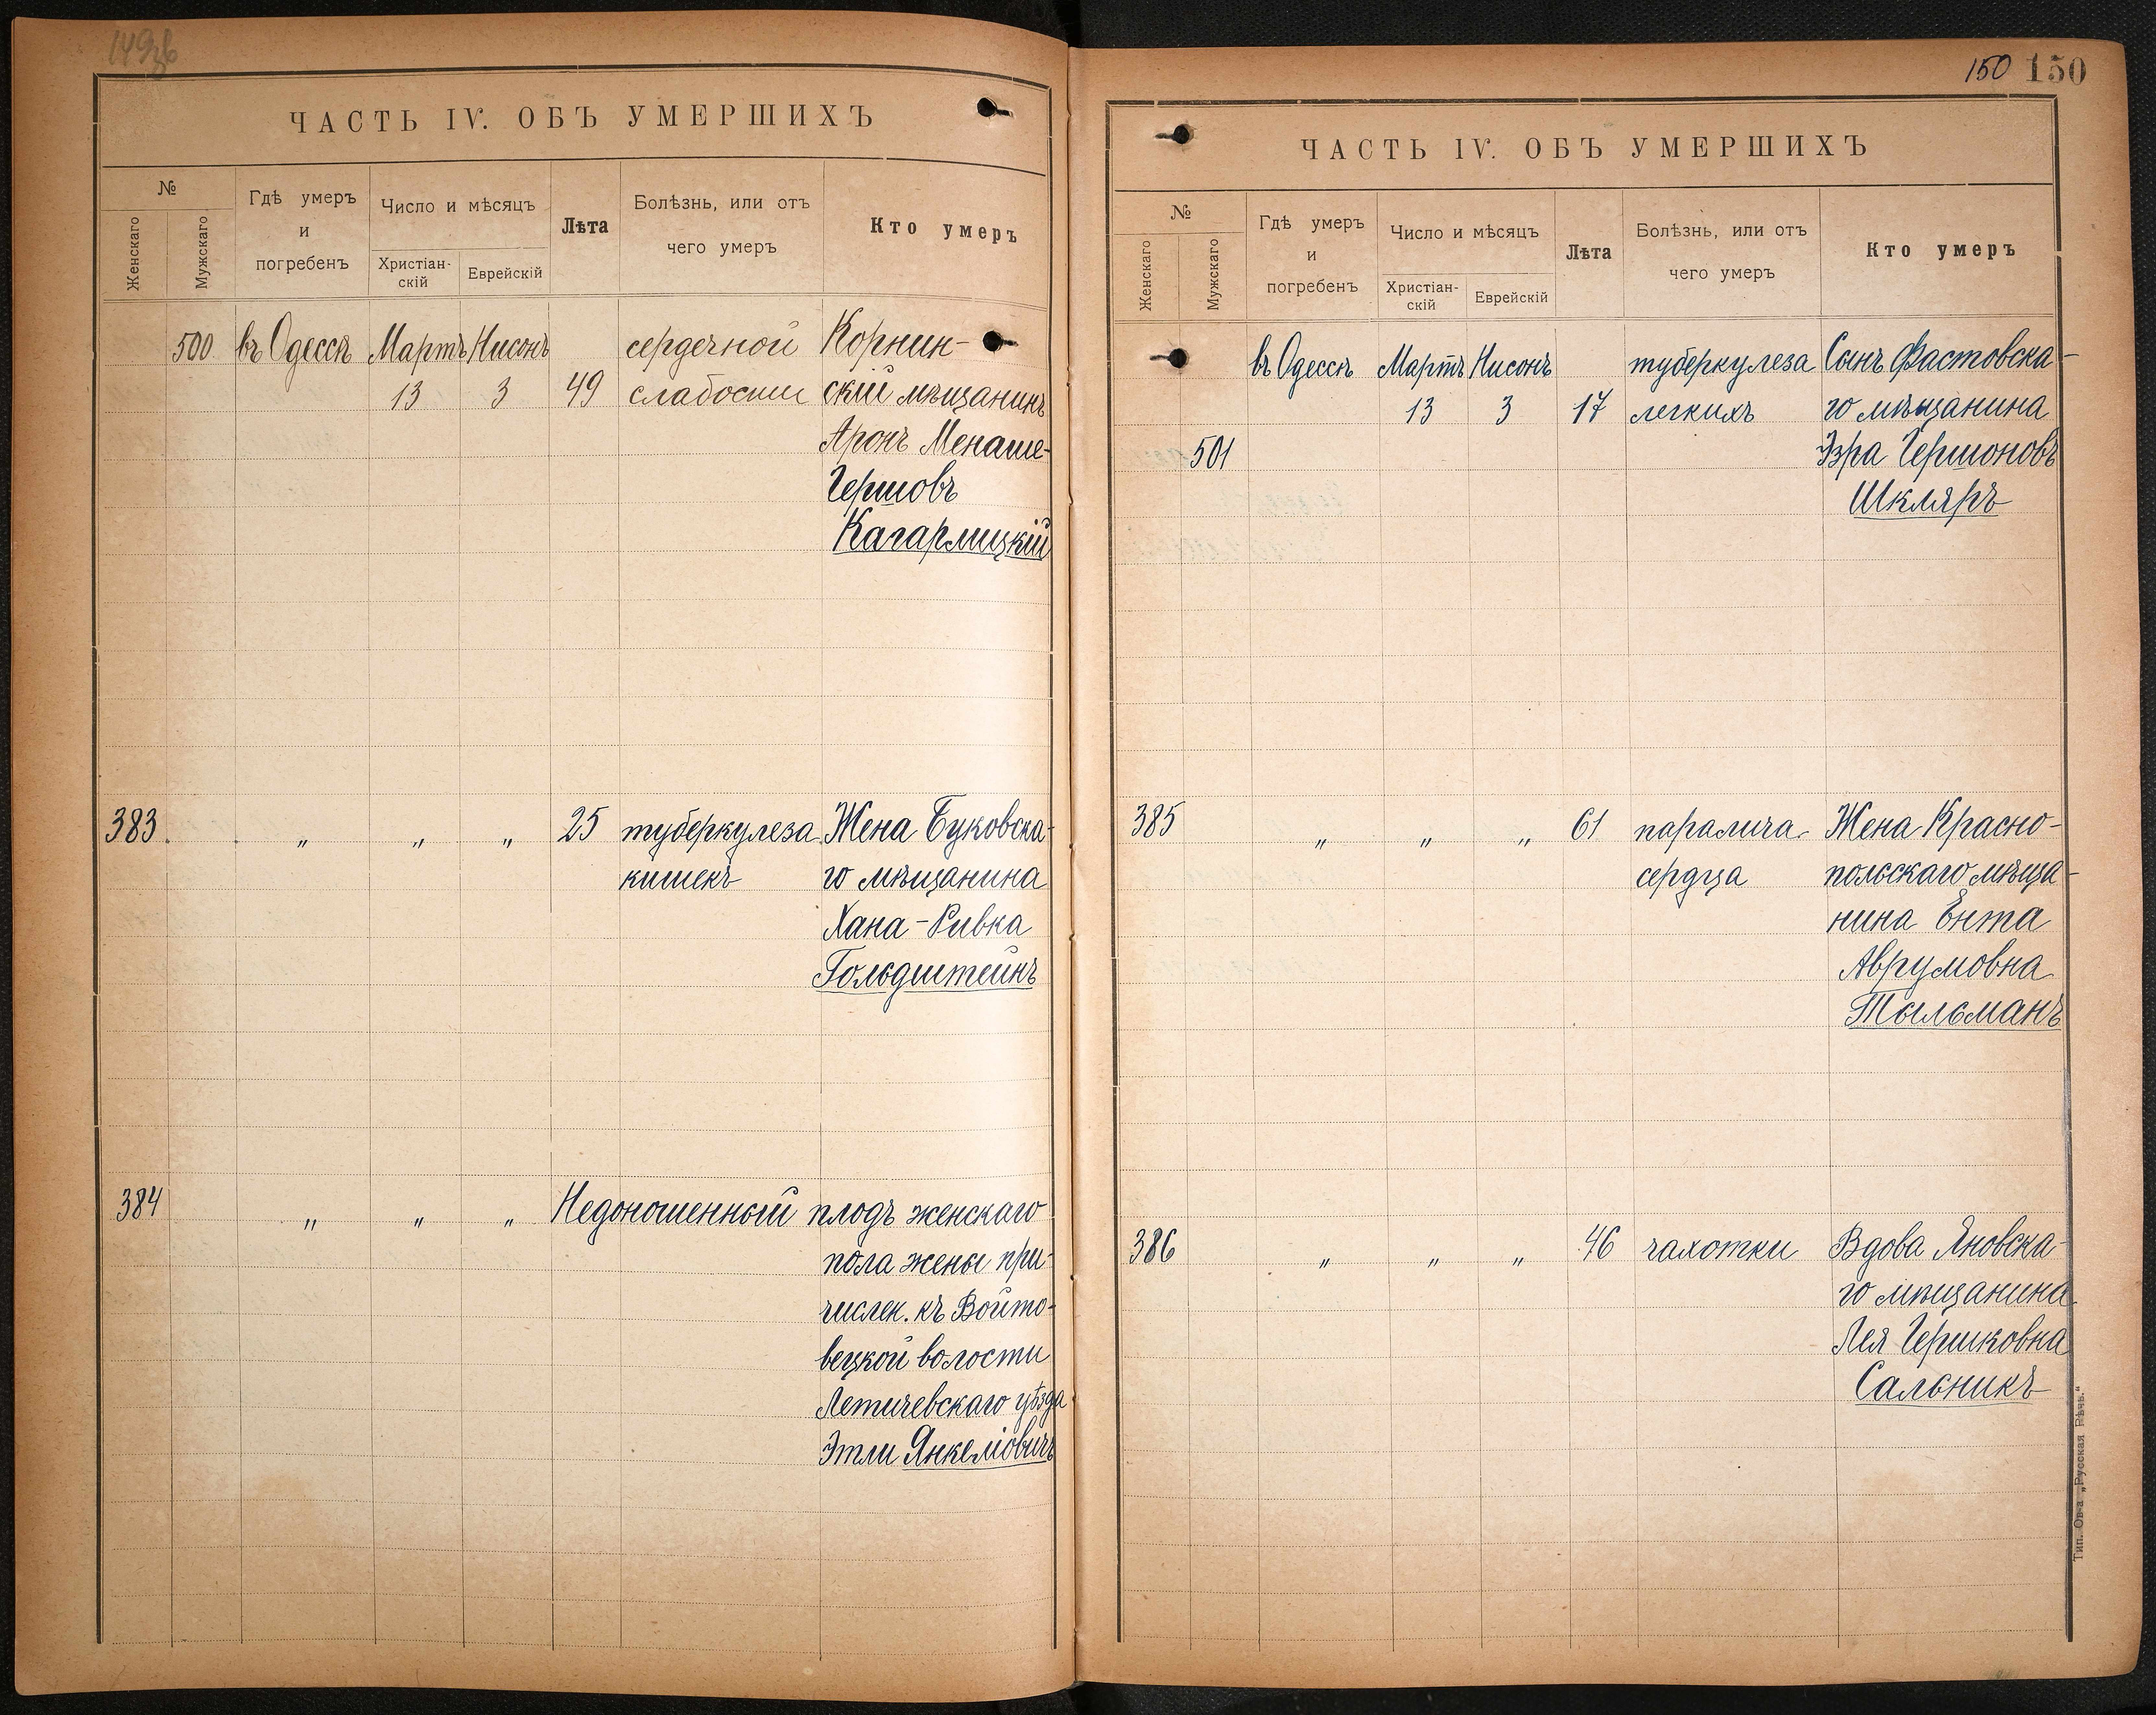 149об
ЧАСТЬ IV. ОБЪ УМЕРШИХЪ
№
Женскаго
Мужскаго
Гдѣ умеръ
и
погребенъ
Число и мѣсяцъ
Христіан-
скій
Еврейскій
Лѣта
Болѣзнь, или отъ
чего умеръ
Кто умеръ
500 въ Одессѣ Мартъ Нисонъ сердечной Корнин-
13 3 49 слабости скій мѣщанинъ
Аронъ Менаше-
Гершовъ
Кагарлицкій
383. " " " 25 туберкулеза Жена Буковска-
кишекъ го мѣщанина
Хана-Ривка
Гольдштейнъ
384 " " " Недоношенный плодъ женскаго
пола жены при-
числен. къ Войто-
вецкой волости
Летичевскаго уѣзда
Этли Янкеліовичъ
150 150
ЧАСТЬ IV. ОБЪ УМЕРШИХЪ
№
Женскаго
Мужскаго
Гдѣ умеръ
и
погребенъ
Число и мѣсяцъ
Христіан-
скій
Еврейскій
Лѣта
Болѣзнь, или отъ
чего умеръ
Кто умеръ
въ Одессѣ Мартъ Нисонъ туберкулеза Сынъ Фастовска-
13 3 17 легкихъ го мѣщанина
501 Эзра Гершоновъ
Шкляръ
385 " " " 61 паралича Жена Красно-
сердца польскаго мѣща-
нина Ента
Аврумовна
Тыльманъ
386 " " " 46 чахотки Вдова Яновска-
го мѣщанина
Лея Гершковна
Сальникъ
Тип. Ов-а „Русская Рѣчь."